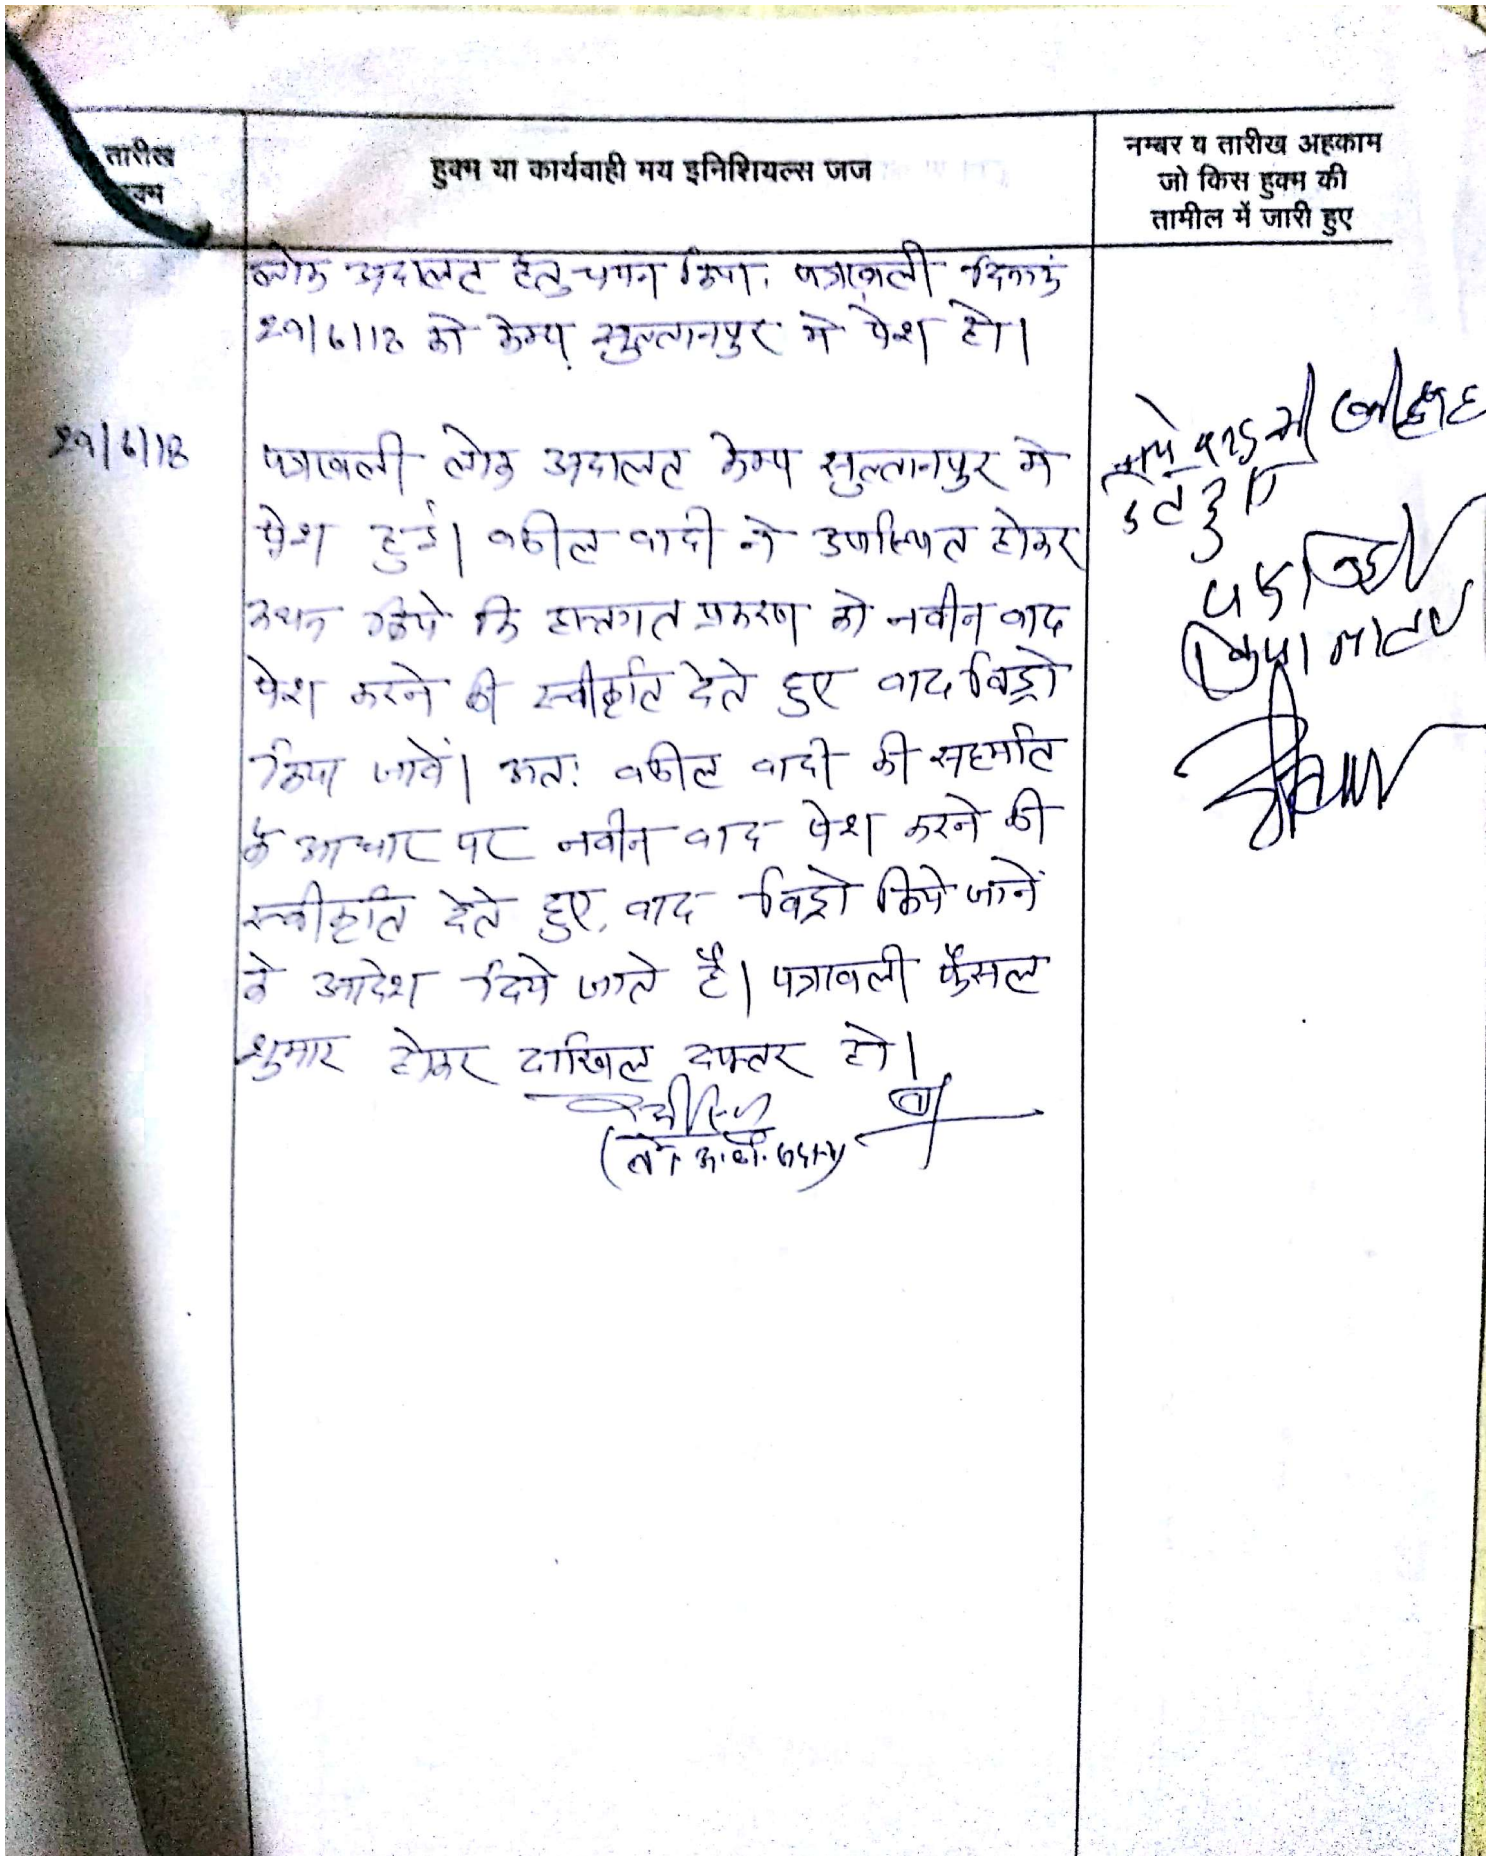 तारीख
हुक्म या कार्यवाही मय इनिशियल्स जज
नम्बर व तारीख अहकाम
जो किस हुक्म की
तामील में जारी हुए
लोक अदालत हेतु चयन किया। पत्रावली दिनांक
29/6/18 को केम्प सुल्तानपुर मे पेश हो।
29/6/18
पत्रावली लोक अदालत केम्प सुल्तानपुर मे
पेश हुई। वकील वादी ने उपस्थित होकर
कथन किये कि हस्तगत प्रकरण को नवीन वाद
पेश करने की स्वीकृति देते हुए वाद विड्रो
किया जावें। अतः वकील वादी की सहमति
के आधार पर नवीन वाद पेश करने की
स्वीकृति देते हुए, वाद विड्रो किये जाने
के आदेश दिये जाते है। पत्रावली फैसल
शुमार होकर दाखिल दफ्तर हो।